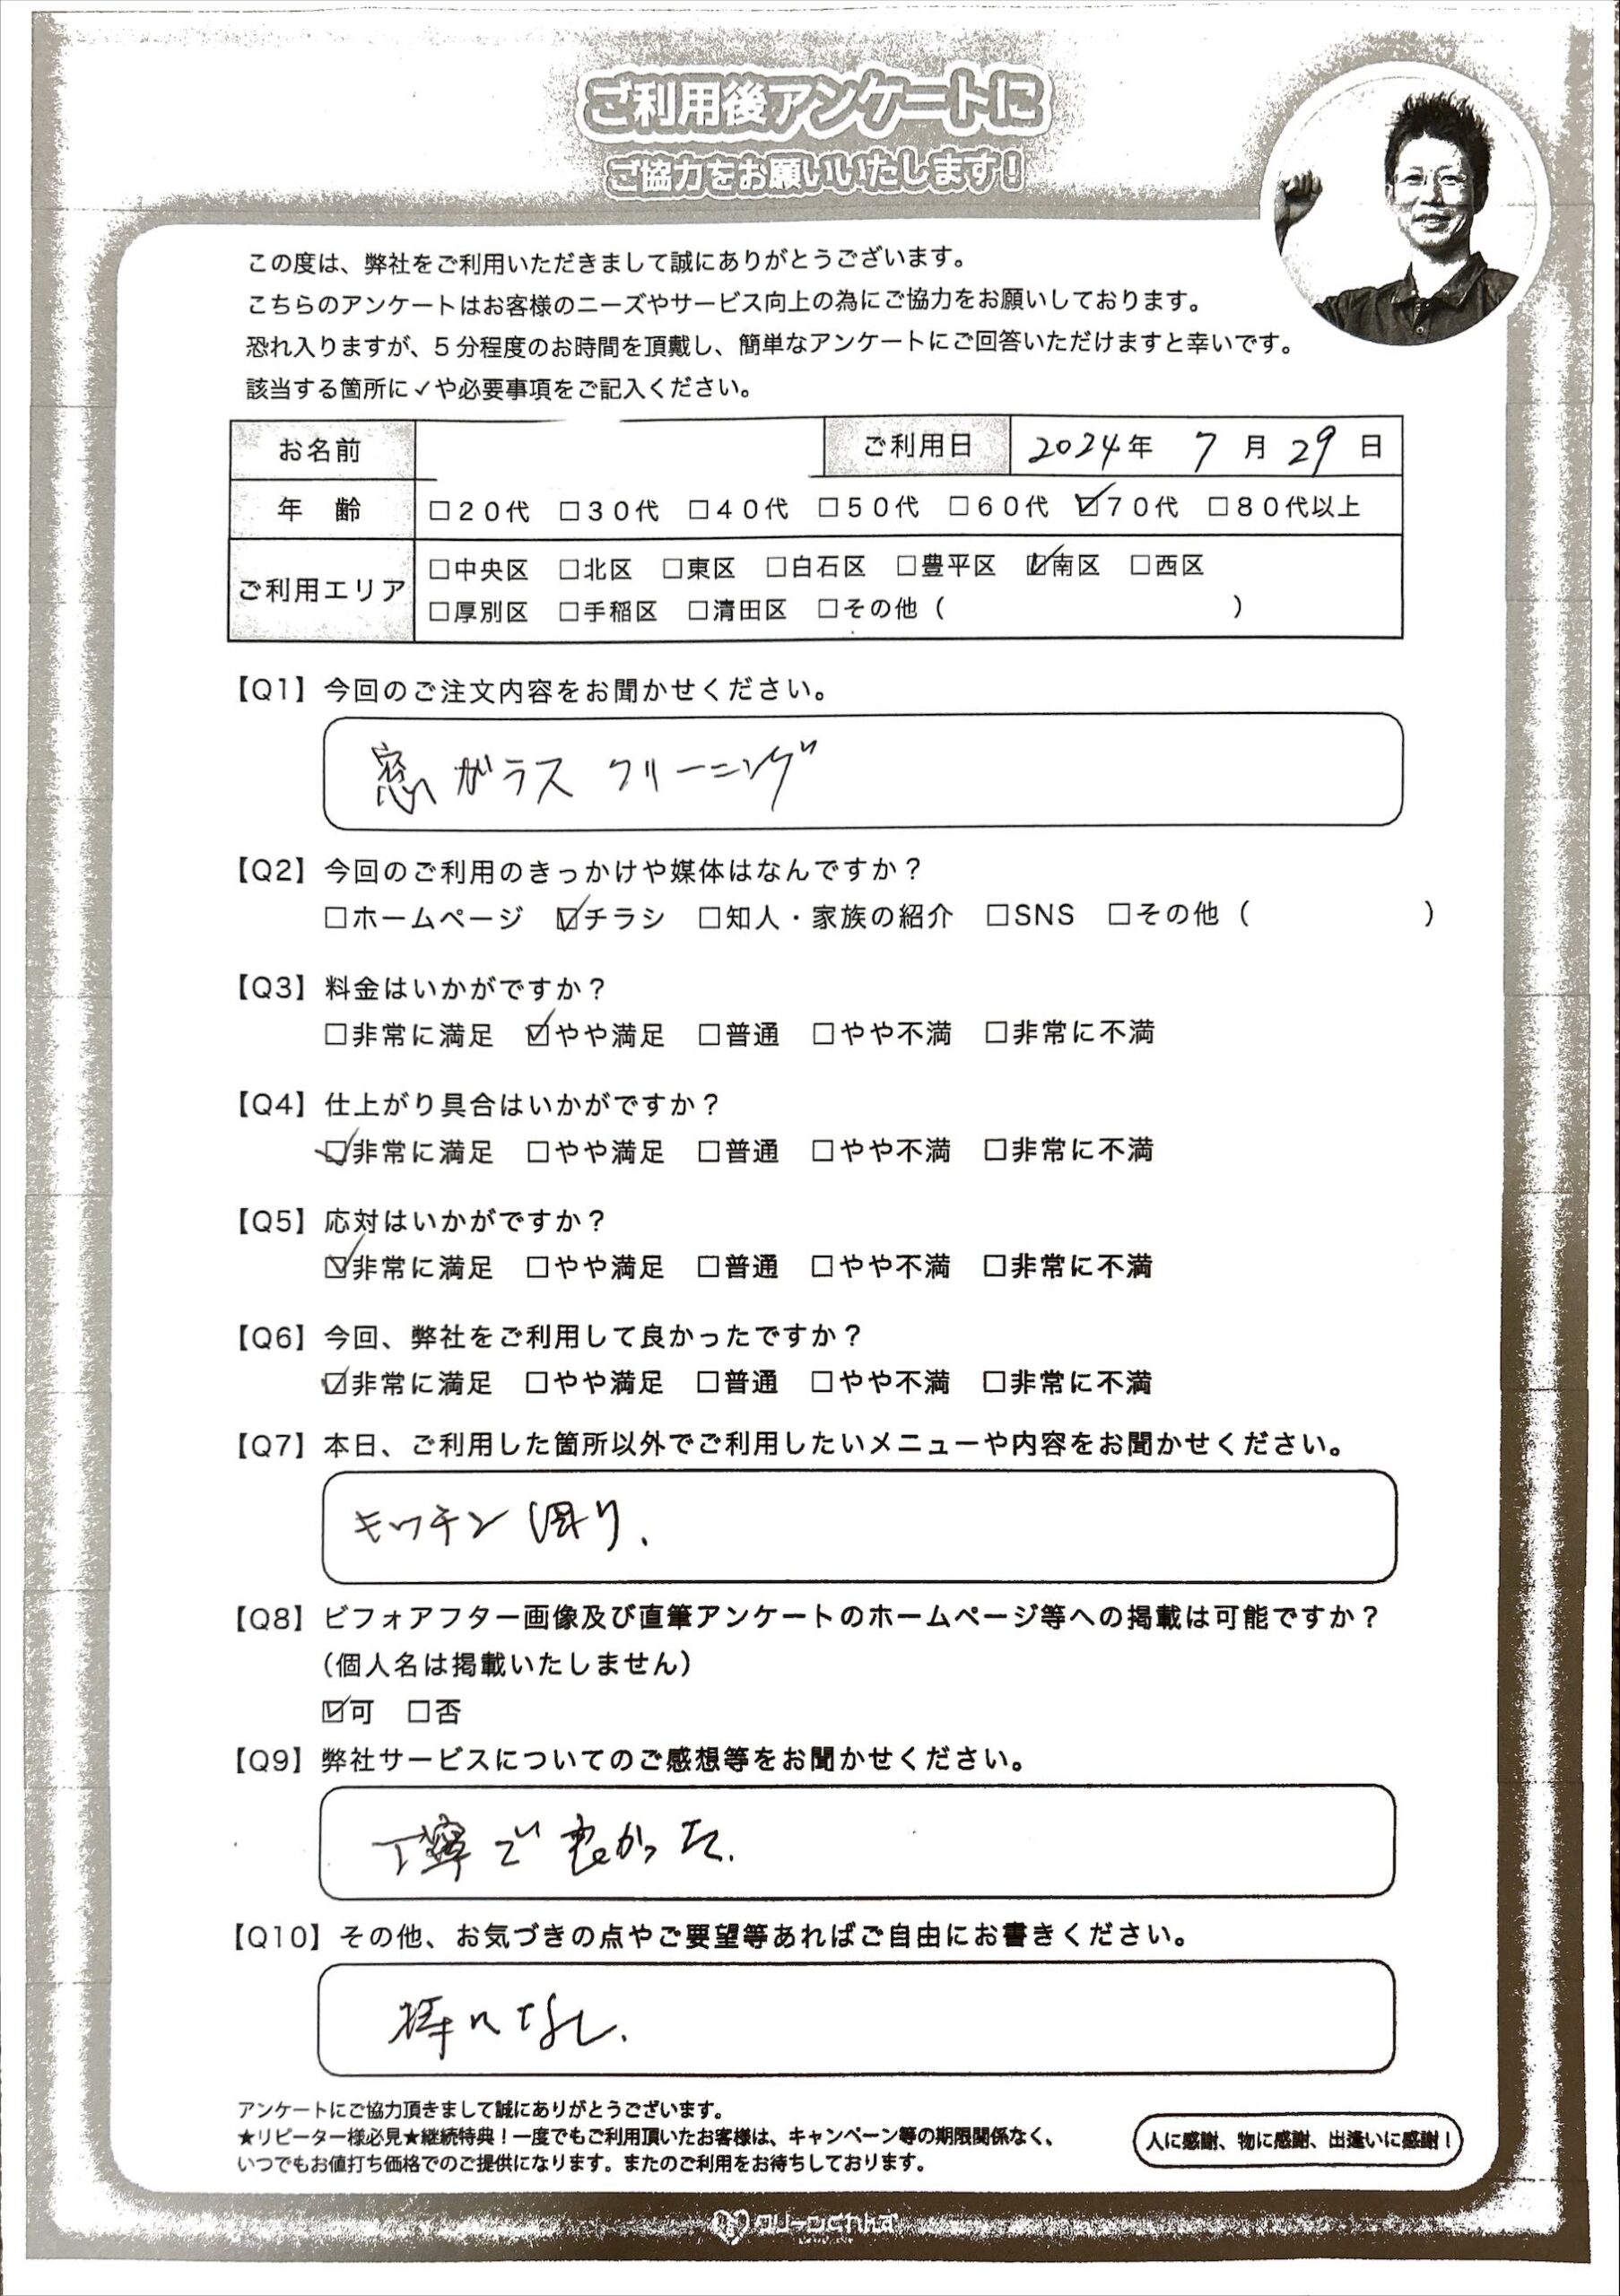 ご利用後アンケートに
ご協力をお願いいたします!
この度は、弊社をご利用いただきまして誠にありがとうございます。
こちらのアンケートはお客様のニーズやサービス向上の為にご協力をお願いしております。
恐れ入りますが、5分程度のお時間を頂戴し、簡単なアンケートにご回答いただけますと幸いです。
該当する箇所に✓や必要事項をご記入ください。
お名前 ご利用日 2024年 7月 29日
年 齢 □20代 □30代 □40代 □50代 □60代 ☑70代 □80代以上
ご利用エリア □中央区 □北区 □東区 □白石区 □豊平区 ☑南区 □西区
□厚別区 □手稲区 □清田区 □その他( )
【Q1】今回のご注文内容をお聞かせください。
窓ガラスクリーニング
【Q2】今回のご利用のきっかけや媒体はなんですか?
□ホームページ ☑チラシ □知人・家族の紹介 □SNS □その他( )
【Q3】料金はいかがですか?
□非常に満足 ☑やや満足 □普通 □やや不満 □非常に不満
【Q4】仕上がり具合はいかがですか?
☑非常に満足 □やや満足 □普通 □やや不満 □非常に不満
【Q5】応対はいかがですか?
☑非常に満足 □やや満足 □普通 □やや不満 □非常に不満
【Q6】今回、弊社をご利用して良かったですか?
☑非常に満足 □やや満足 □普通 □やや不満 □非常に不満
【Q7】本日、ご利用した箇所以外でご利用したいメニューや内容をお聞かせください。
キッチン周り.
【Q8】ビフォアフター画像及び直筆アンケートのホームページ等への掲載は可能ですか?
(個人名は掲載いたしません)
☑可 □否
【Q9】弊社サービスについてのご感想等をお聞かせください。
丁寧で良かった.
【Q10】その他、お気づきの点やご要望等あればご自由にお書きください。
特になし.
アンケートにご協力頂きまして誠にありがとうございます。
★リピーター様必見★継続特典!一度でもご利用頂いたお客様は、キャンペーン等の期限関係なく、
いつでもお値打ち価格でのご提供になります。またのご利用をお待ちしております。
人に感謝、物に感謝、出逢いに感謝!